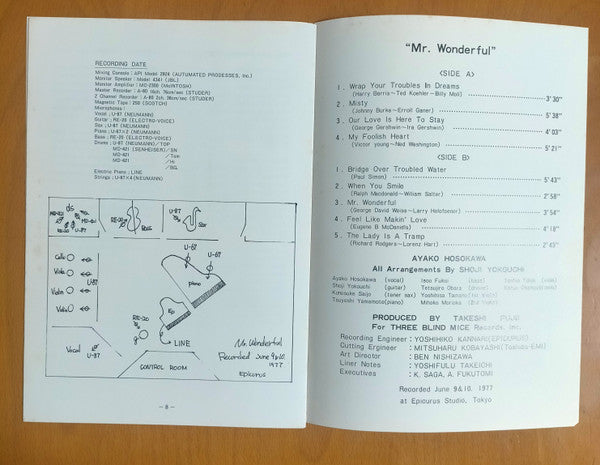 RECORDING DATE
Mixing Console : API Model 2824 (AUTUMATED PROSESSES, Inc.)
Monitor Speaker : Model 4341 (JBL)
Monitor Amplifier : MC-2300 (McINTOSH)
Master Recorder : A-80 76cm/sec (STUDER)
2 Channel Recorder : A-80 2ch. 38cm/sec (STUDER)
Magnetic Tape : 250 (SCOTCH)
Microphones :
Vocal : U-87 (NEUMANN)
Guitar : RE-20 (ELECTRO-VOICE)
Sax : U-87 (NEUMANN)
Piano : U-67×2 (NEUMANN)
Bass : RE-20 (ELECTRO-VOICE)
Drums : U-87 (NEUMANN)/TOP
MD-421 (SENHEISER)/SN
MD-421 /Tom
MD-421 /Hi
MD-421 /BG.
Electric Piano : LINE
Strings : U-87×4 (NEUMANN)
ds
U-87
MD-421
RE-20
Bass
U-87
Sax
U-67
U-67
piano
Cello
Viola
U-87
Violin
Violin
Ep
RE-20
g
LINE
Vocal
U-87
CONTROL ROOM
Mr. Wonderful
Recorded June 9&10.
1977
Epicurus
— 8 —
"Mr. Wonderful"
<SIDE A>
1. Wrap Your Troubles In Dreams
(Harry Barris–Ted Koehler–Billy Moll) 3'30"
2. Misty
(Johnny Burke–Erroll Ganer) 5'38"
3. Our Love Is Here To Stay
(George Gershwin–Ira Gershwin) 4'03"
4. My Foolish Heart
(Victor young–Ned Washington) 5'21"
<SIDE B>
1. Bridge Over Troubled Water
(Paul Simon) 5'43"
2. When You Smile
(Ralph Macdonald–William Salter) 2'58"
3. Mr. Wonderful
(George David Weiss–Larry Holofcenor) 3'54"
4. Feel Like Makin' Love
(Eugene B McDaniels) 4'18"
5. The Lady Is A Tramp
(Richard Rodgers–Lorenz Hart) 2'45"
AYAKO HOSOKAWA
All Arrangements By SHOJI YOKOUCHI
Ayako Hosokawa (vocal) Isao Fukui (bass)
Shoji Yokouchi (guitar) Tetsujiro Obara (drums)
Kunsuke Saijo (tenor sax) Yoshihisa Tamano (1st Violin)
Tsuyoshi Yamamoto (piano) Mihoko Morioka (2nd Violin)
PRODUCED BY TAKESHI FUJII
For THREE BLIND MICE Records, Inc.
Recording Engineer : YOSHIHIKO KANNARI (EPICURUS)
Cutting Engineer : MITSUHARU KOBAYASHI (Toshiba-EMI)
Art Director : BEN NISHIZAWA
Liner Notes : YOSHIFULU TAKEICHI
Executives : K. SAGA, A. FUKUTOMI
Recorded June 9&10, 1977
at Epicurus Studio, Tokyo